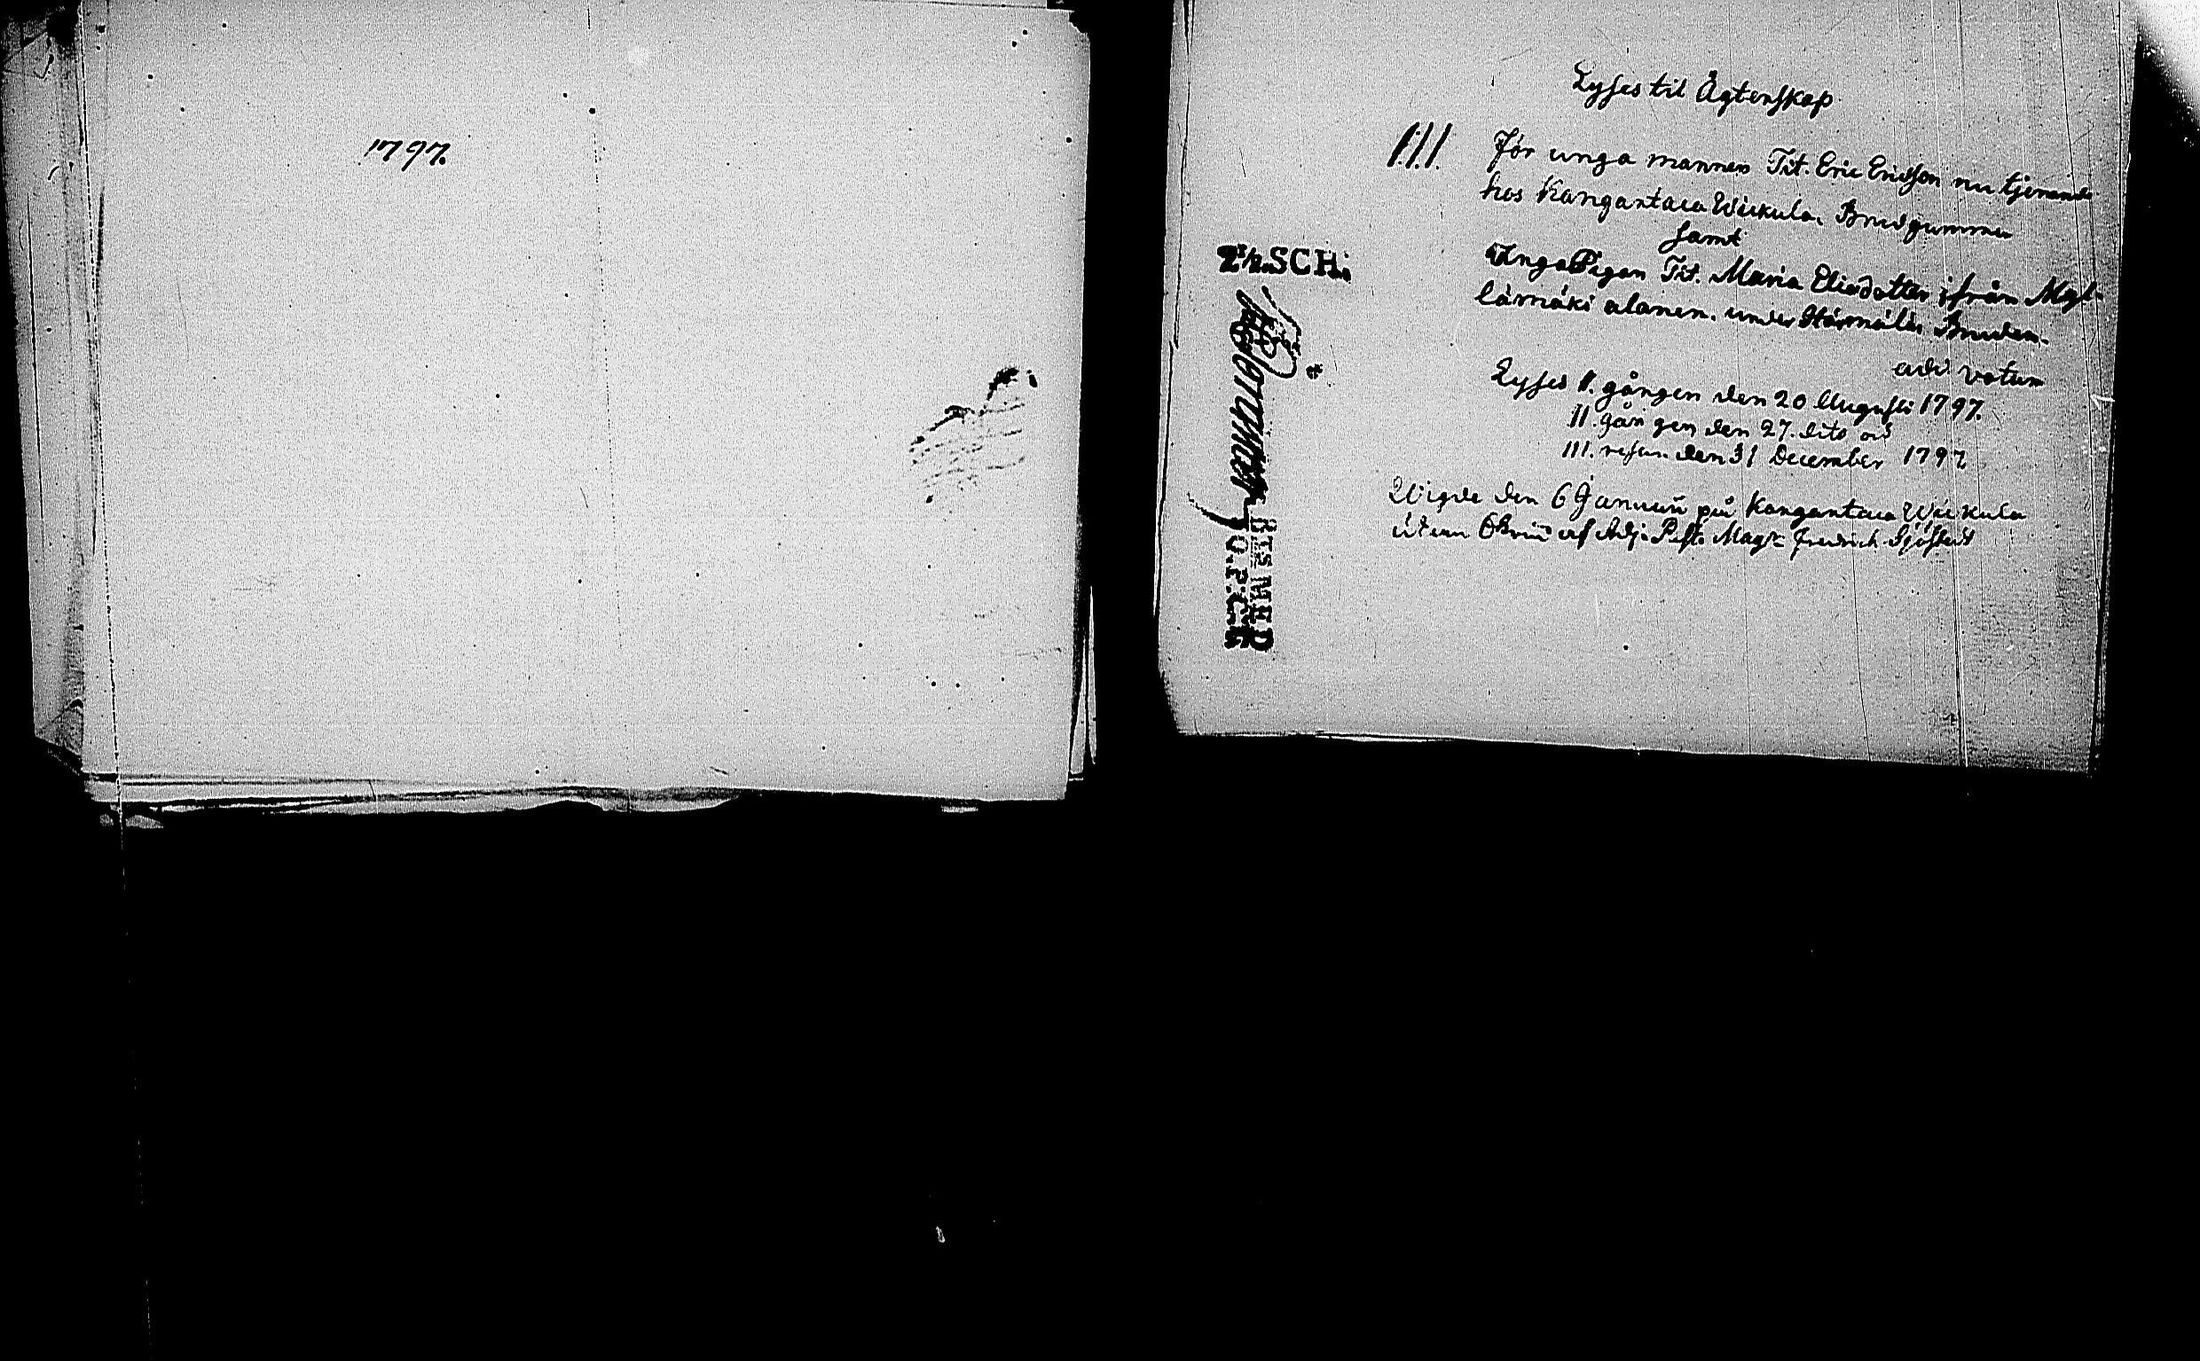 1797.
Lyses til Ägtenskap
I.II. För unga mannen Tit. Eric Ericsson nu tjenande
hos Kangantaca Wiekula. Brudgummen
samt
Unga Pigan Tit. Maria Eliædotter ifrån Myl-
lärmäki alanen. under Härmälä Bruden.
add votum
Lyses I. gången den 20 Augusti 1797.
II. gången den 27. dito och
III. resan den 31 December 1797
Wigde den 6 Januarii på Kangantaca Wiekula
af Adj. Past. Mag. Fredrich Sjöstedt
SCH.